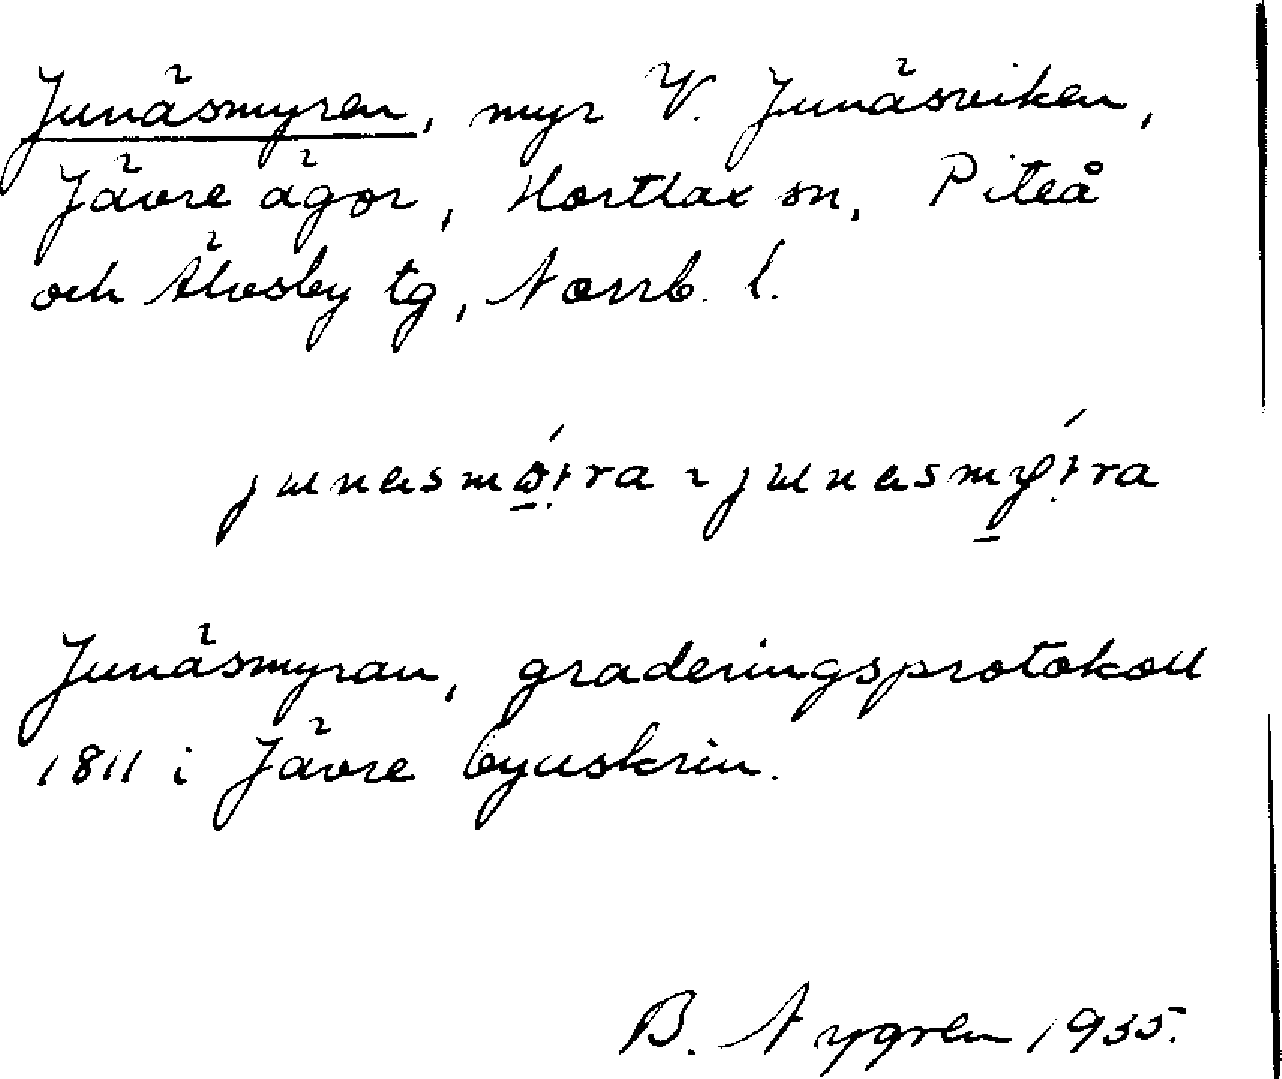 Junäsmyren, myr V. Junäsviken,
Jävre ägor, Hortlax sn, Piteå
och Älvsby tg, Norrb. l.
Junäsmyran, graderingsprotokoll
1811 i Jävre byuskrin.
B. Nygren 1935.